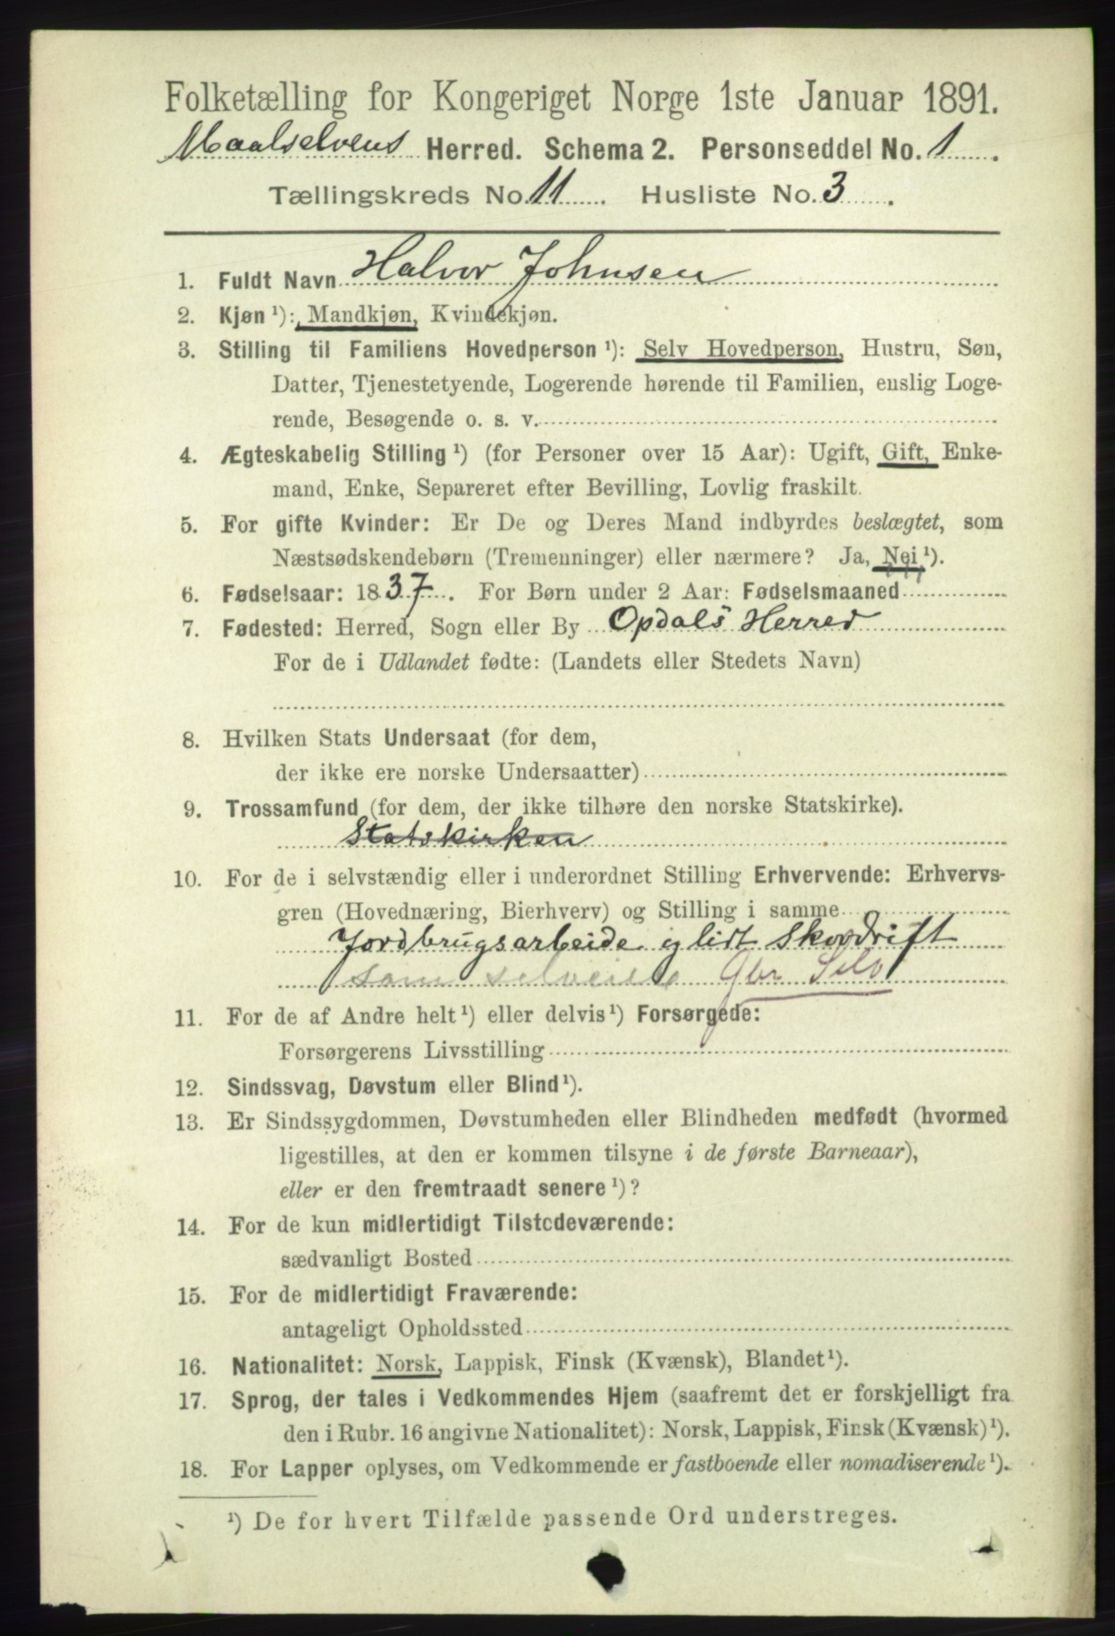 Folketælling for Kongeriget Norge 1ste Januar 1891.
Maalselvens Herred. Schema 2. Personseddel No. 1.
Tællingskreds No. 11. Husliste No. 3.
1. Fuldt Navn Halvor Johnsen
2. Kjøn ¹): Mandkjøn, Kvindekjøn.
3. Stilling til Familiens Hovedperson ¹): Selv Hovedperson, Hustru, Søn,
Datter, Tjenestetyende, Logerende hørende til Familien, enslig Loge-
rende, Besøgende o. s. v.
4. Ægteskabelig Stilling ¹) (for Personer over 15 Aar): Ugift, Gift, Enke-
mand, Enke, Separeret efter Bevilling, Lovlig fraskilt.
5. For gifte Kvinder: Er De og Deres Mand indbyrdes beslægtet, som
Næstsødskendebørn (Tremenninger) eller nærmere? Ja, Nei ¹).
6. Fødselsaar: 1837. For Børn under 2 Aar: Fødselsmaaned
7. Fødested: Herred, Sogn eller By Opdals Herred
For de i Udlandet fødte: (Landets eller Stedets Navn)
8. Hvilken Stats Undersaat (for dem,
der ikke ere norske Undersaatter)
9. Trossamfund (for dem, der ikke tilhøre den norske Statskirke).
Statskirken
10. For de i selvstændig eller i underordnet Stilling Erhvervende: Erhvervs-
gren (Hovednæring, Bierhverv) og Stilling i samme
Jordbrugsarbeide og lidt Skovdrift
som selveier Gbr Selv
11. For de af Andre helt ¹) eller delvis ¹) Forsørgede:
Forsørgerens Livsstilling
12. Sindssvag, Døvstum eller Blind ¹).
13. Er Sindssygdommen, Døvstumheden eller Blindheden medfødt (hvormed
ligestilles, at den er kommen tilsyne i de første Barneaar),
eller er den fremtraadt senere ¹)?
14. For de kun midlertidigt Tilstedeværende:
sædvanligt Bosted
15. For de midlertidigt Fraværende:
antageligt Opholdssted
16. Nationalitet: Norsk, Lappisk, Finsk (Kvænsk), Blandet ¹).
17. Sprog, der tales i Vedkommendes Hjem (saafremt det er forskjelligt fra
den i Rubr. 16 angivne Nationalitet): Norsk, Lappisk, Finsk (Kvænsk) ¹).
18. For Lapper oplyses, om Vedkommende er fastboende eller nomadiserende ¹).
¹) De for hvert Tilfælde passende Ord understreges.